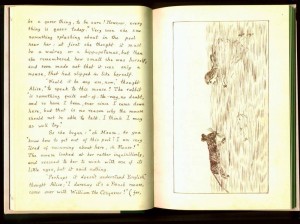 be a queer thing, to be sure! However, every-
thing is queer today." Very soon she saw
something splashing about in the pool
near her: at first she thought it must
be a walrus or a hippopotamus, but then
she remembered how small she was herself,
and soon made out that it was only a
mouse, that had slipped in like herself.
"Would it be any use, now," thought
Alice, "to speak to this mouse? The rabbit
is something quite out-of-the-way, no doubt,
and so have I been, ever since I came down
here, but that is no reason why the mouse
should not be able to talk. I think I may
as well try."
So she began, "oh Mouse, do you
know how to get out of this pool? I am very
tired of swimming about here, oh Mouse!"
The mouse looked at her rather inquisitively,
and seemed to her to wink with one of its
little eyes, but it said nothing.
"Perhaps it doesn't understand English,"
thought Alice; "I daresay it's a French mouse,
come over with William the Conqueror!" (for,